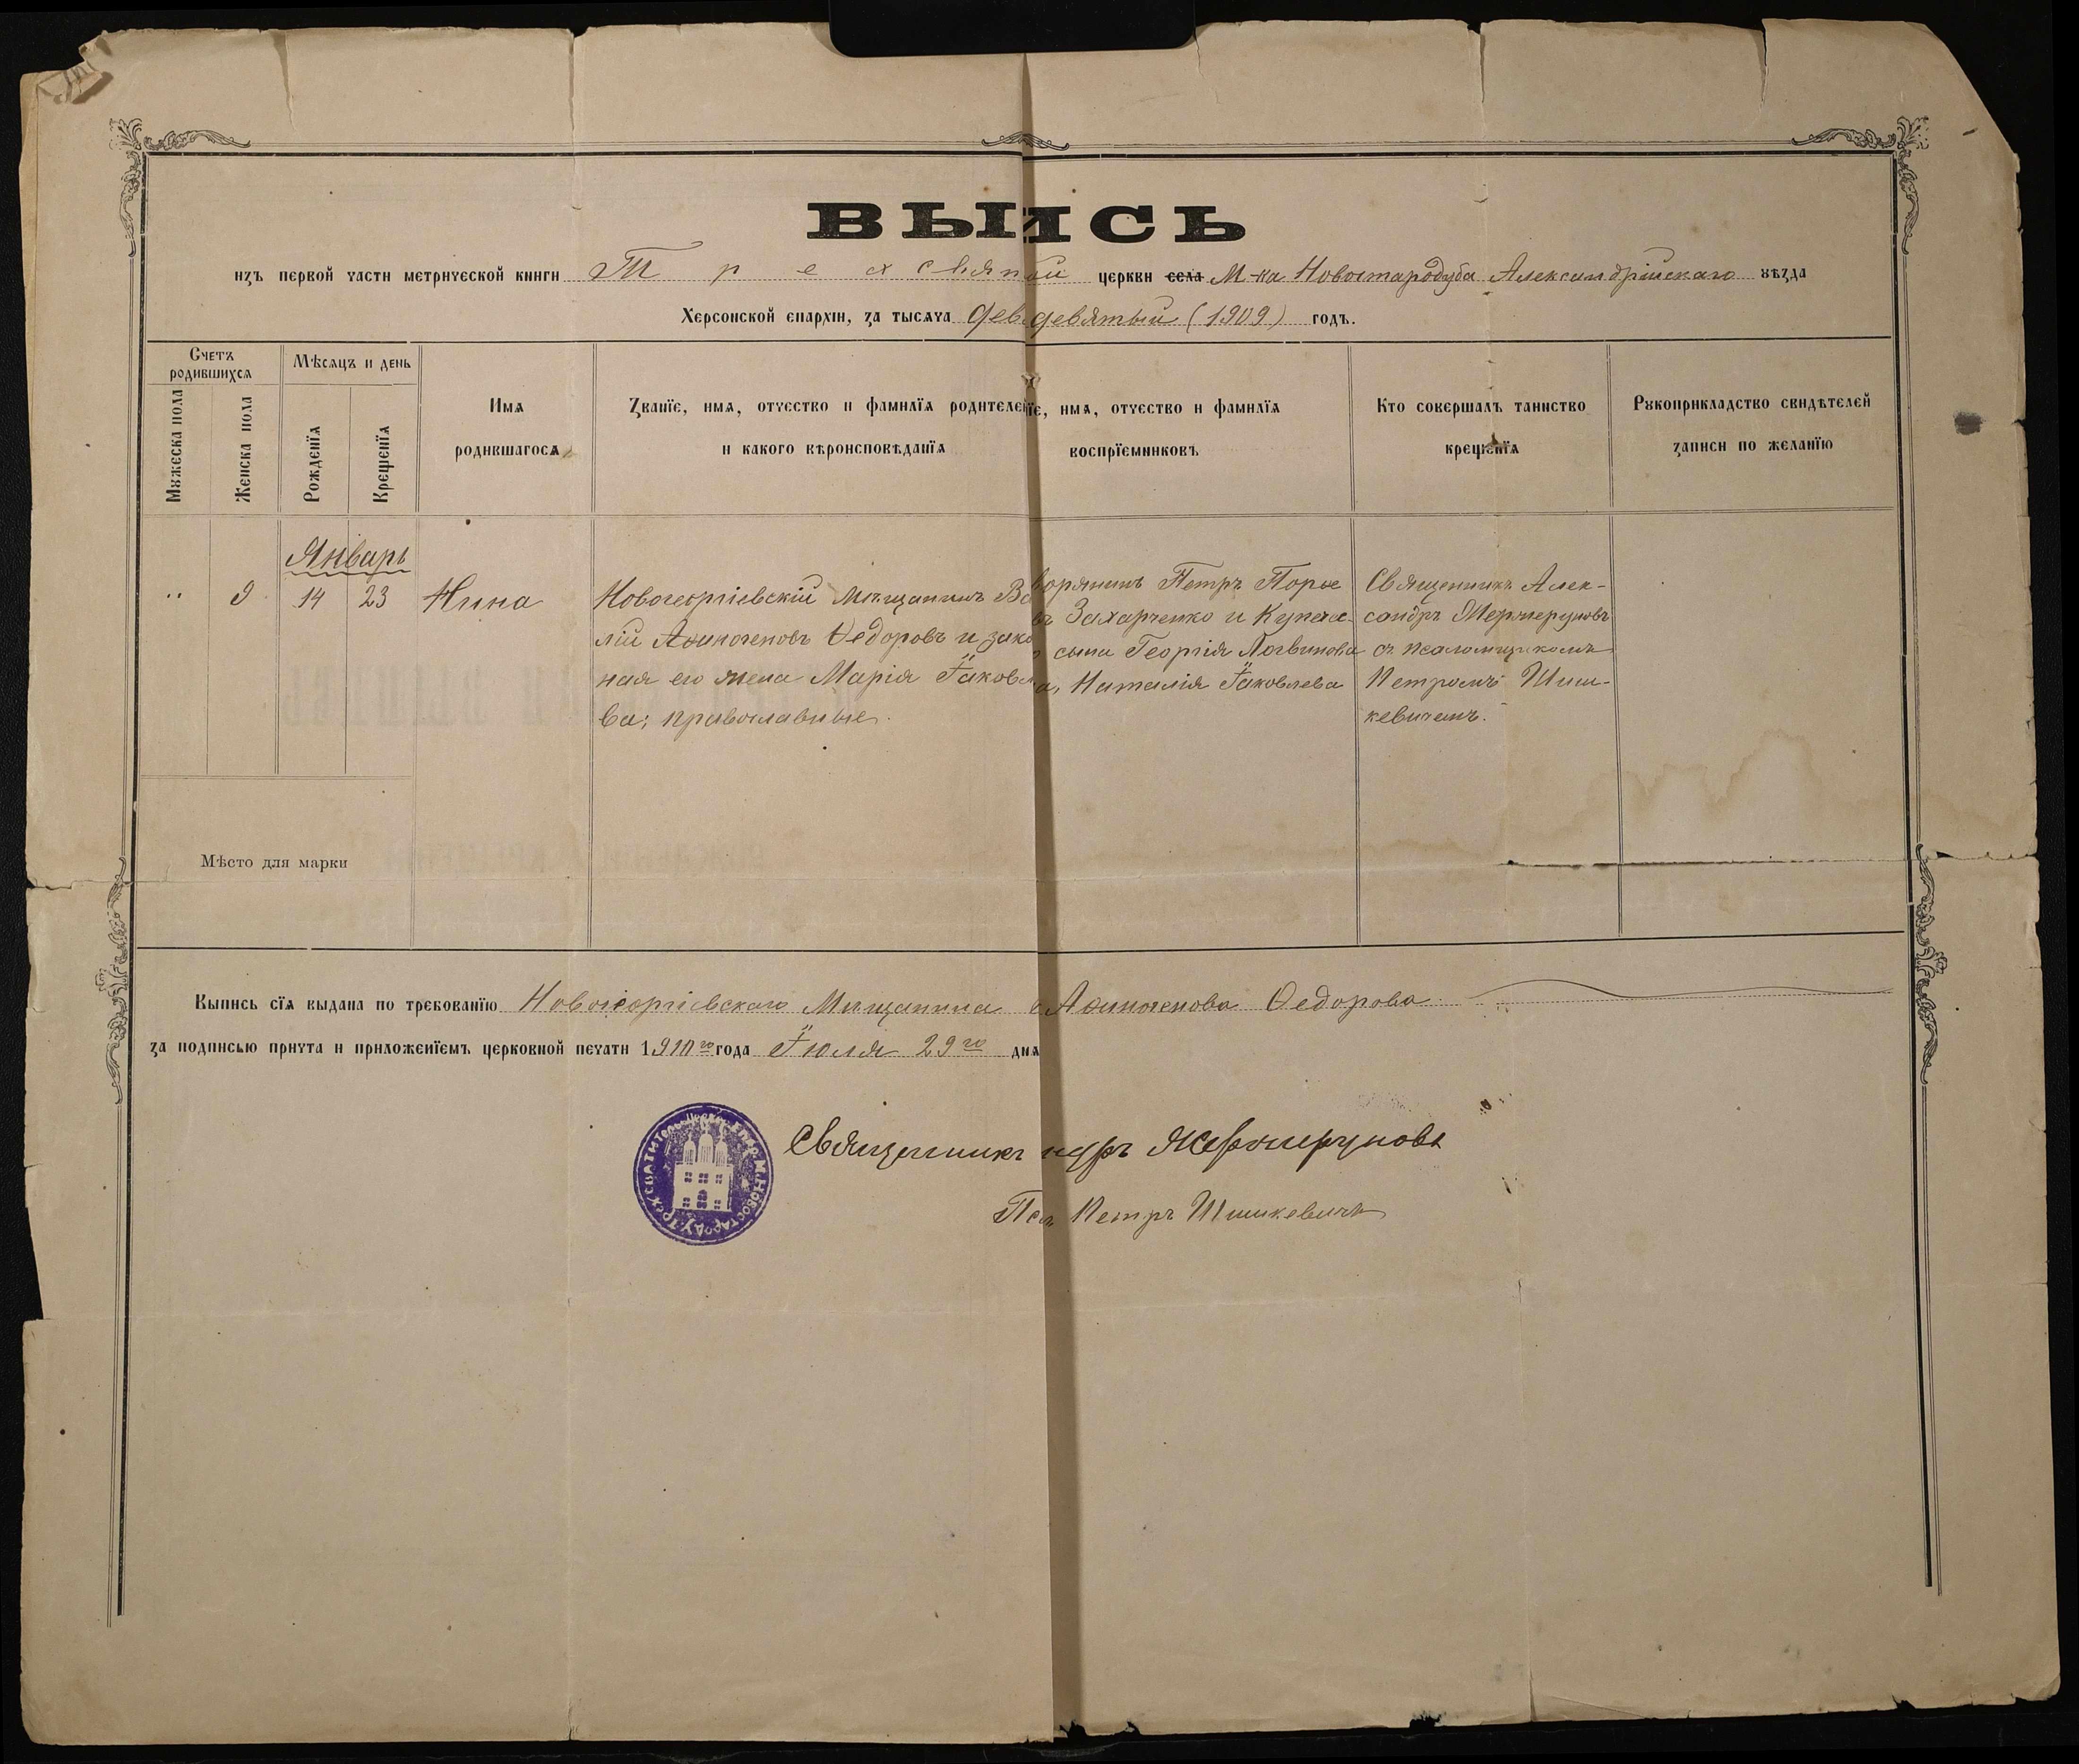 ВЫИСЬ
изъ первой части метрической книги Трехсвятой церкви села М-ка Новостародуба Александрійскаго уѣзда
Херсонской епархіи, за тысяча дев девятый (1909) годъ.
Счетъ родившихся
Мѣсяцъ и день
Мужеска пола
Женска пола
Рожденїя
Крещенїя
Имя
родившагося
Званїе, имя, отчество и фамилїя родителей
и какого вѣроисповѣданїя
їе, имя, отчество и фамилїя
воспрїемниковъ
Кто совершалъ таинство
крещенїя
Рукоприкладство свидѣтелей
записи по желанїю
Январь
" 9 14 23 Нина
Новогеоргіевскій мѣщанинъ Ва
лій Аѳиногеновъ Ѳедоровъ и зако
ная его жена Марія Іаковл
ва; православные.
ворянинъ Петръ
въ Захарченко и Купече-
сына Георгія Логвинова
а, Наталія Іаковлева
Священникъ Алек-
сандръ Жермеруновъ
съ псаломщикомъ
Петромъ Шиш-
кевичемъ.
Мѣсто для марки
Выпись сїя выдана по требованїю Новогеоргіевскаго Мѣщанина Аѳиногенова Ѳедорова
за подписью причта и приложенїемъ церковной печати 1910 го года Іюля 29 го дня
Священникъ ндръ Жермеруновъ
Пса Петръ Шишкевичъ